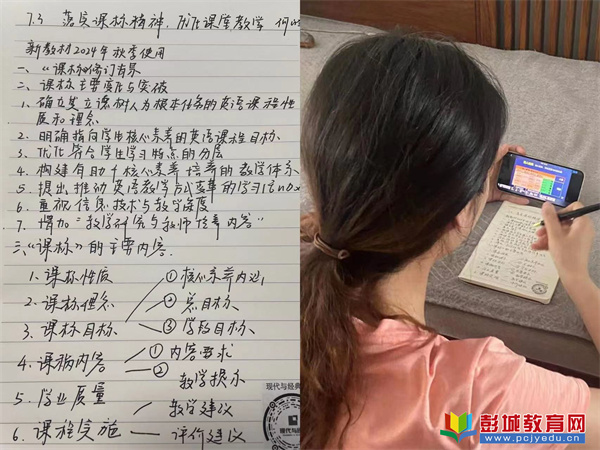 7.3 落实课标精神，优化课堂教学 何
新教材2024年秋季使用
一、"课标"修订背景
二、课标主要变化与突破
1. 确立其立德树人为根本任务的英语课程性
质和理念
2. 明确指向学生核心素养的英语课程目标、
3. 优化符合学生学习特点的分层
4. 构建有助于核心素养培养的教学体系
5. 提出推动英语教学方式变革的学习活动观
6. 重视信息技术与教学深度
7. 增加"教学研究与教师培养内容"
三、"课标"的主要内容.
1. 课标性质
① 核心素养内涵
2. 课标理念
② 总目标、
3. 课标目标
③ 学段目标、
4. 课程内容
① 内容要求
② 教学提示
5. 学业质量
教学建议
6. 课程实施 — 评价建议
现代与经典
彭城教育网
www.pcjyedu.cn